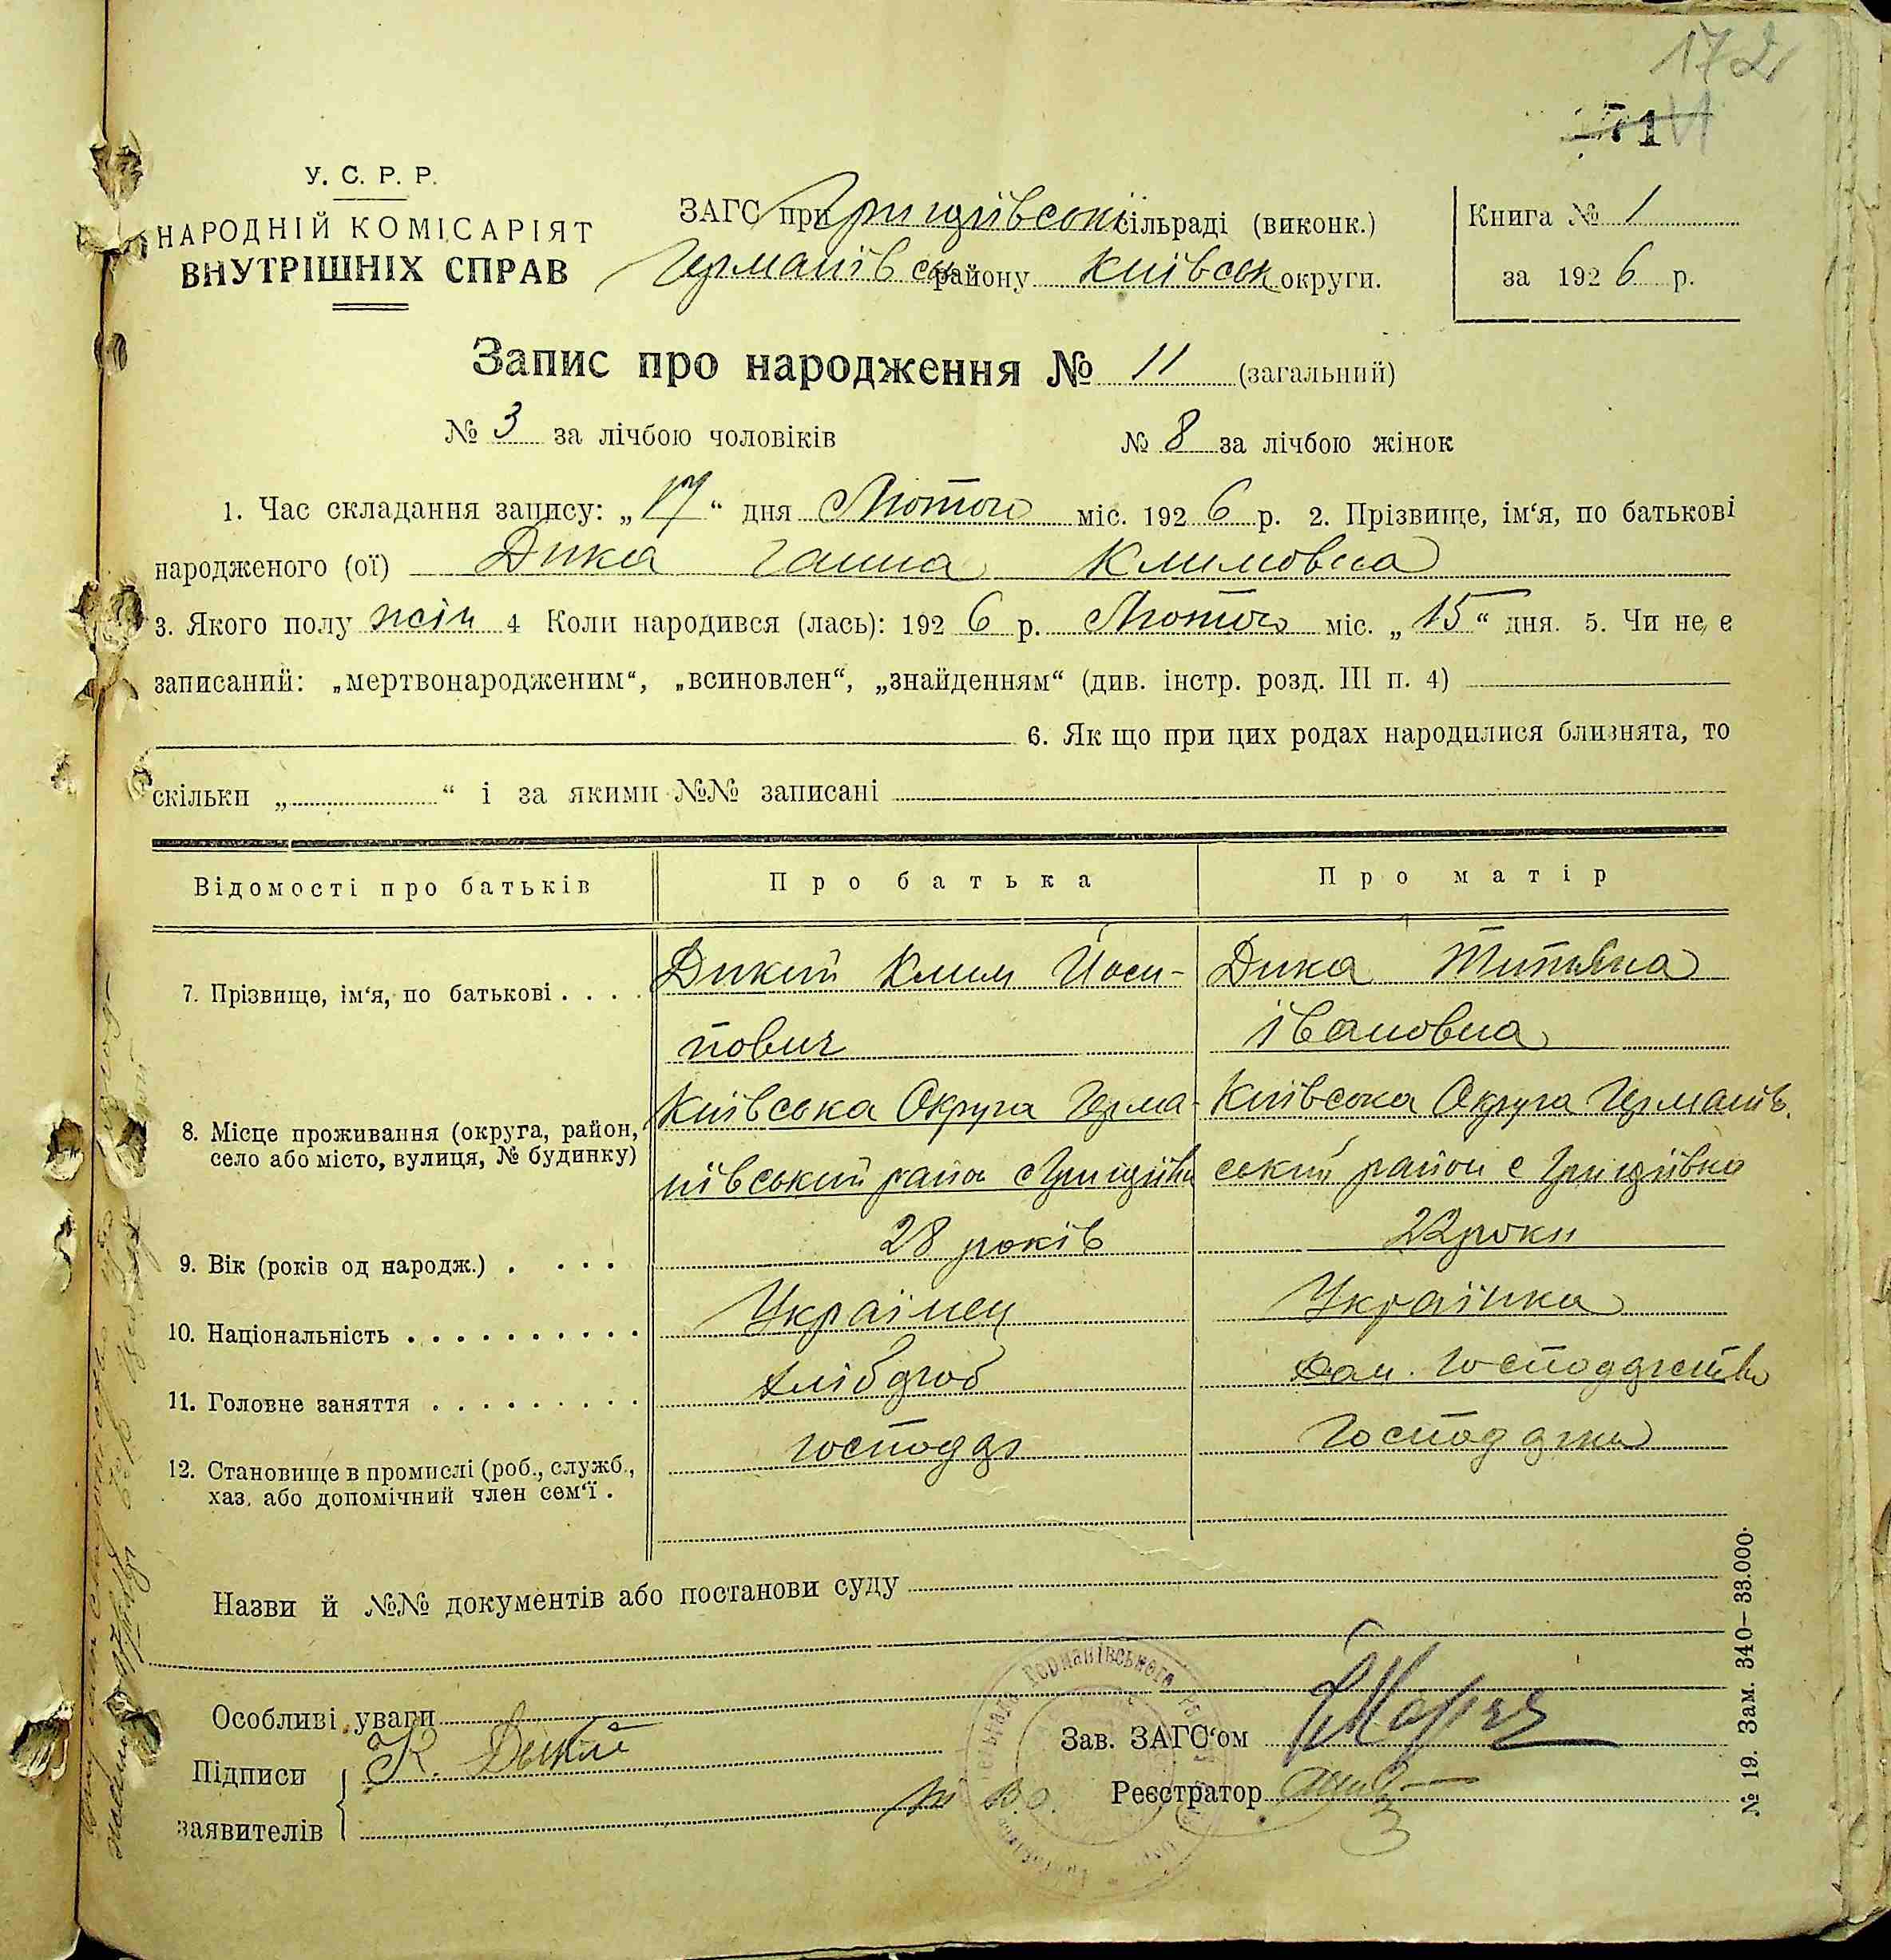 172
1
У. С. Р. Р.
НАРОДНІЙ КОМІСАРІЯТ
ВНУТРІШНІХ СПРАВ
ЗАГС при Грищівській сільраді (виконк.)
Германівськ району Київськ округи.
Книга № 1
за 1926 р.
Запис про народження № 11 (загальний)
№ 3 за лічбою чоловіків № 8 за лічбою жінок
1. Час складання запису: „17“ дня Лютого міс. 1926 р. 2. Прізвище, ім‘я, по батькові
народженого (ої) Дика Ганна Климовна
3. Якого полу жін 4 Коли народився (лась): 1926 р. Лютого міс. „15“ дня. 5. Чи не є
записаний: „мертвонародженим“, „всиновлен“, „знайденням“ (див. інстр. розд. III п. 4)
6. Як що при цих родах народилися близнята, то
скільки „ “ і за якими №№ записані
Відомості про батьків Про батька Про матір
7. Прізвище, ім‘я, по батькові . . . . Дикий Клим Йоси- Дика Титьяна
пович Івановна
8. Місце проживання (округа, район, Київська Округа Герма- Київська Округа Германів.
село або місто, вулиця, № будинку) нівський район с Грищівка ський район с Грищівка
9. Вік (років од народж.) . . . . 28 років 22 роки
10. Національність . . . . . . . . . . Українец Українка
11. Головне заняття . . . . . . . . . Хлібороб Дом. Господдрство
12. Становище в промислі (роб., служб., господар Господарка
хаз. або допомічний член сем‘ї .
Назви й №№ документів або постанови суду
Особливі уваги
Підписи К. Дикий
заявителів
Зав. ЗАГС‘ом
т в.о. Реєстратор
№ 19. Зам. 340—33.000.
Германівського